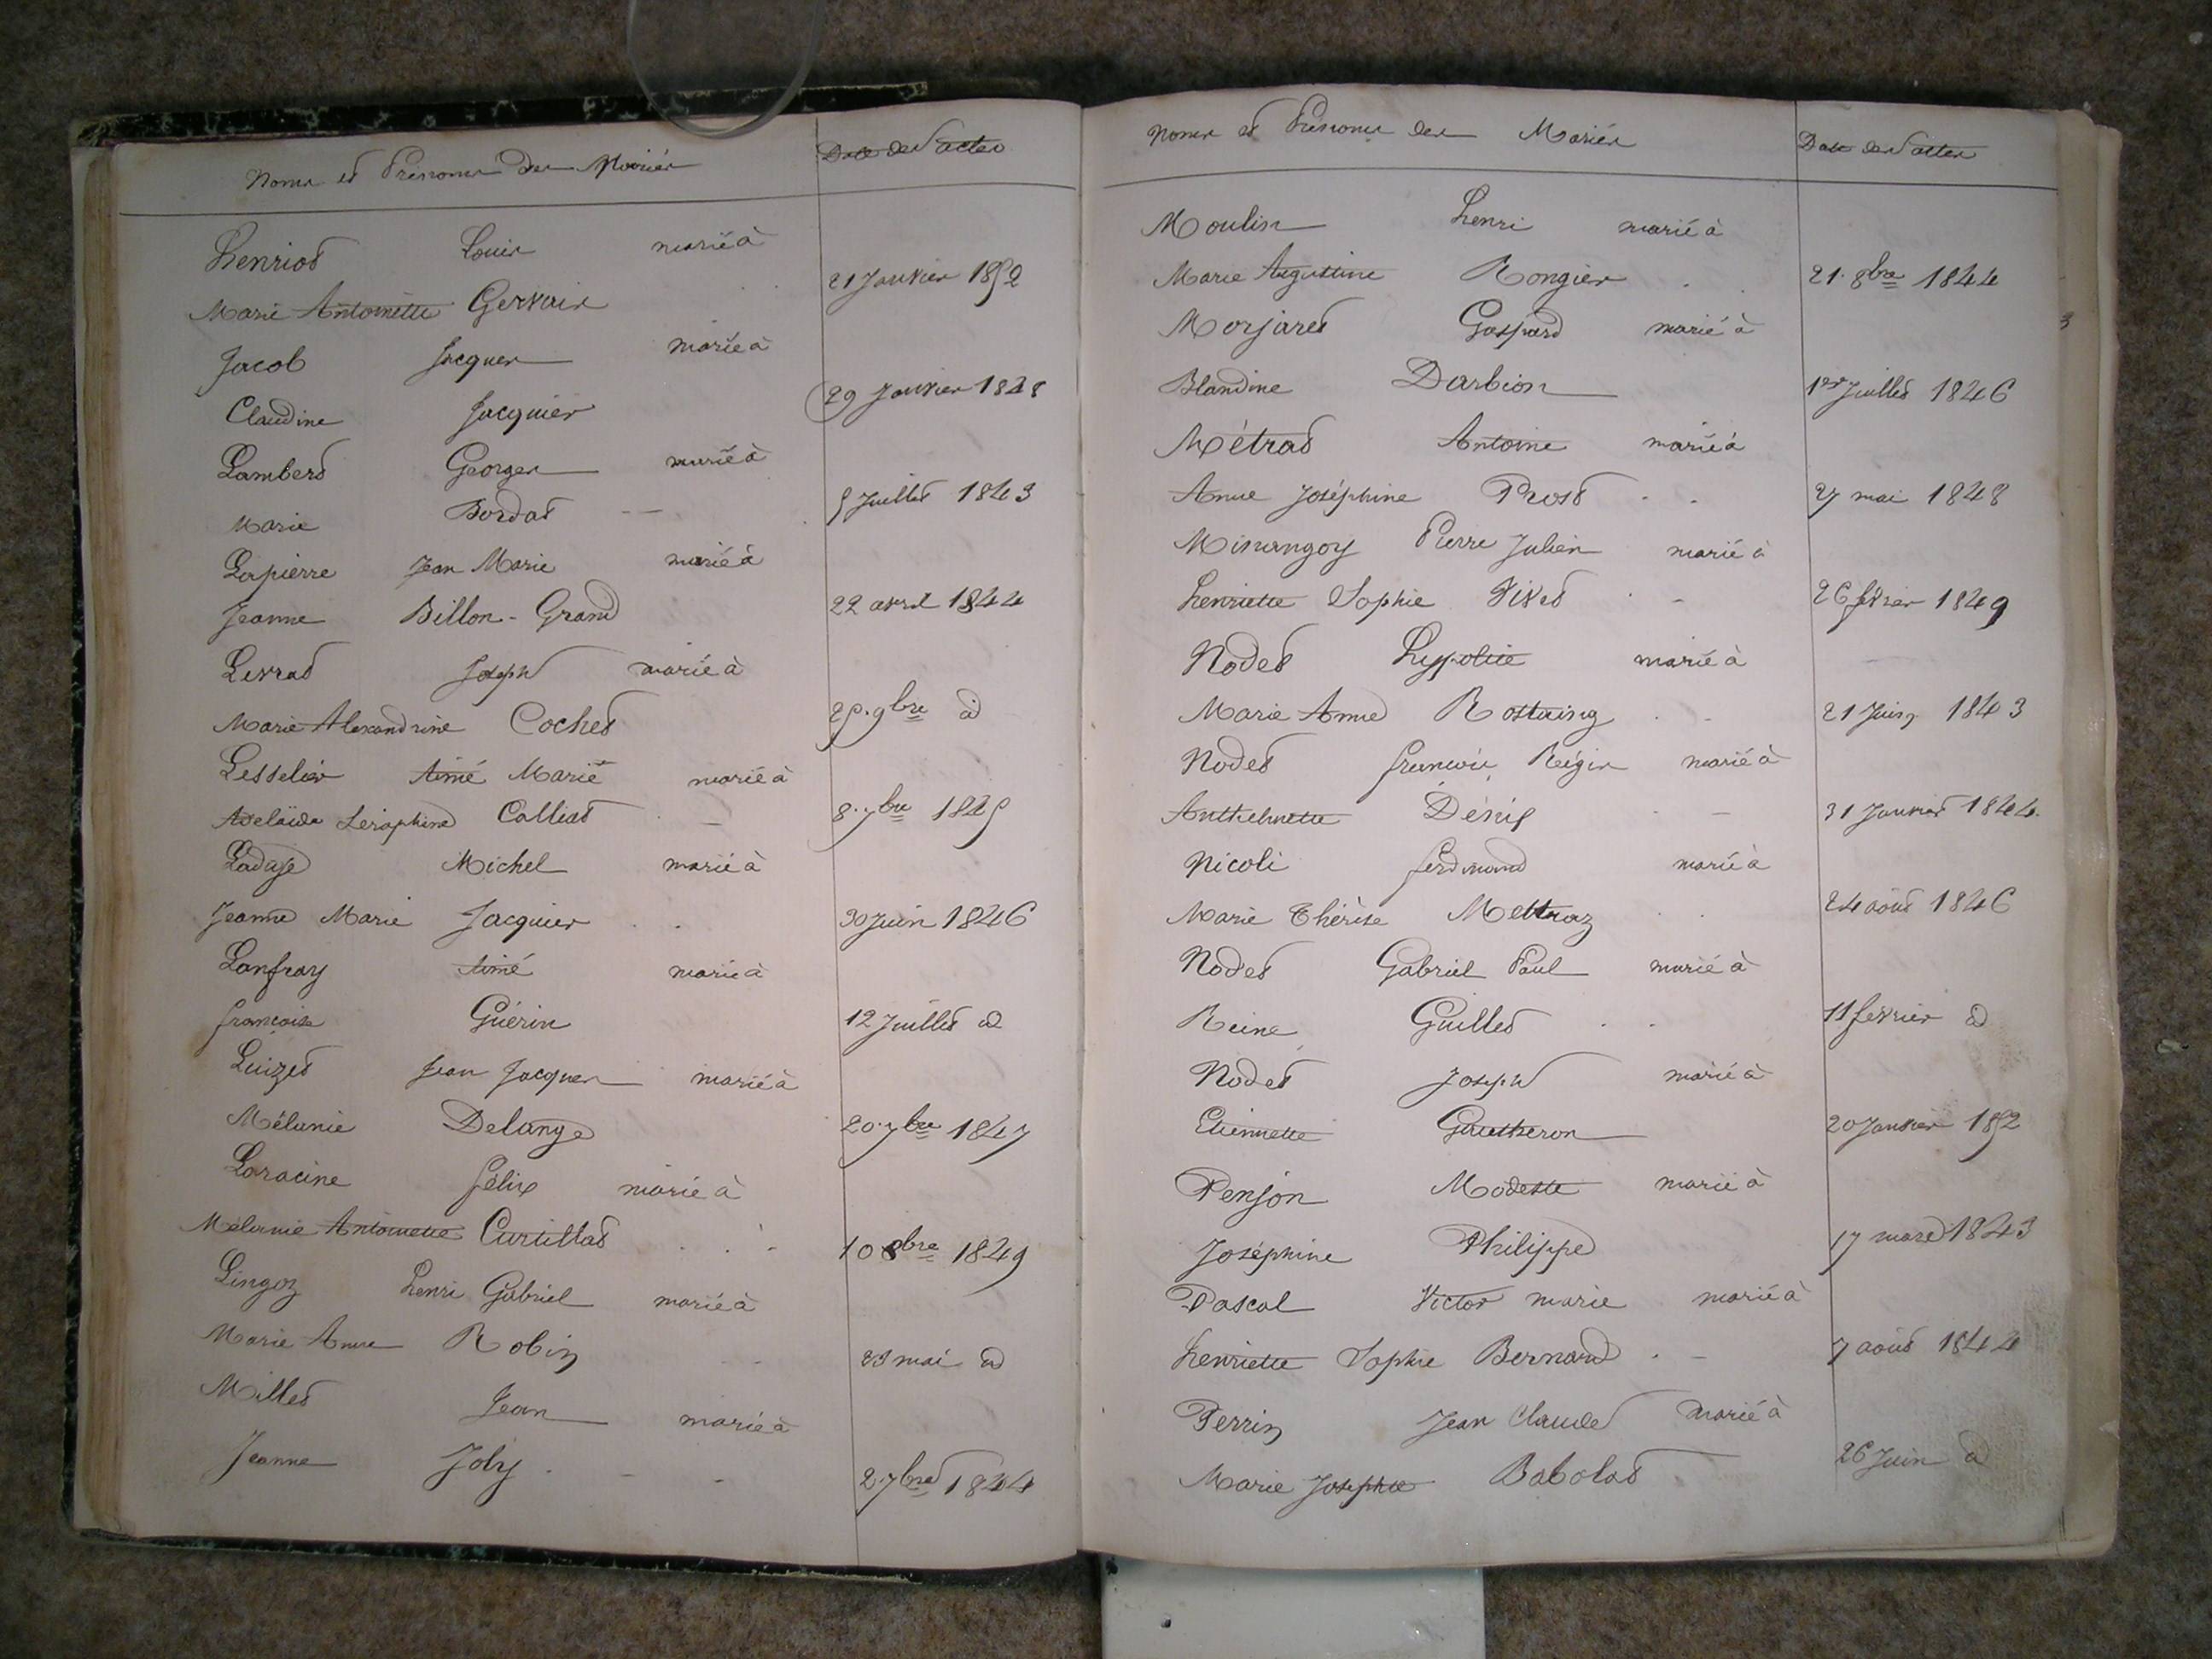 Noms et Prénoms des Mariés Date des actes
Henriot Louis marié à
Marie Antoinette Gervais 21 Janvier 1852
Jacob Jacques marié à
Claudine Jacquier 29 Janvier 1848
Lambert Georges marié à
Marie Bordat 5 Juillet 1843
Lapierre Jean Marie marié à
Jeanne Billon-Grand 22 avril 1844
Levrat Joseph marié à
Marie Alexandrine Cochet 25. 9bre id
Lesselier Aimé Marie marié à
Adelaïde Séraphine Colliat 8. 7bre 1845
Michel marié à
Jeanne Marie Jacquier 30 Juin 1846
Lanfray Aimé marié à
françoise Guérin 12 Juillet id
Luizet Jean Jacques marié à
Mélanie Delange 20. 7bre 1847
Laracine félix marié à
Mélanie Antoinette Curtillat 10 8bre 1849
Lingoz henri Gabriel marié à
Marie Anne Robin mai id
Millet Jean marié à
Jeanne Joly 2. 7bre 1844
Noms et Prénoms des Mariés Date des actes
Moulin henri marié à
Marie Augustine Rongier 21. 8bre 1844
Morjaret Gaspard marié à
Blandine Darbion 1er Juillet 1846
Métrat Antoine marié à
Anne Joséphine Prost 27 mai 1848
Minangoy Pierre Julien marié à
henriette Sophie Vivet 26 février 1849
Nodet hyppolite marié à
Marie Anne Rostaing 21 Juin 1843
Nodet françois Régis marié à
Anthelmette Dénis 31 Janvier 1844
Nicoli ferdinand marié à
Marie Thérèse Mettraz 24 août 1846
Nodet Gabriel Paul marié à
Reine Guillet 11 février id
Nodet Joseph marié à
Etiennette Gautheron 20 Janvier 1852
Penjon Modeste marié à
Joséphine Philippe 17 mars 1843
Pascal Victor marie marié à
henriette Sophie Bernard 7 août 1844
Perrin Jean Claude marié à
Marie Josephte Babolat 26 Juin id